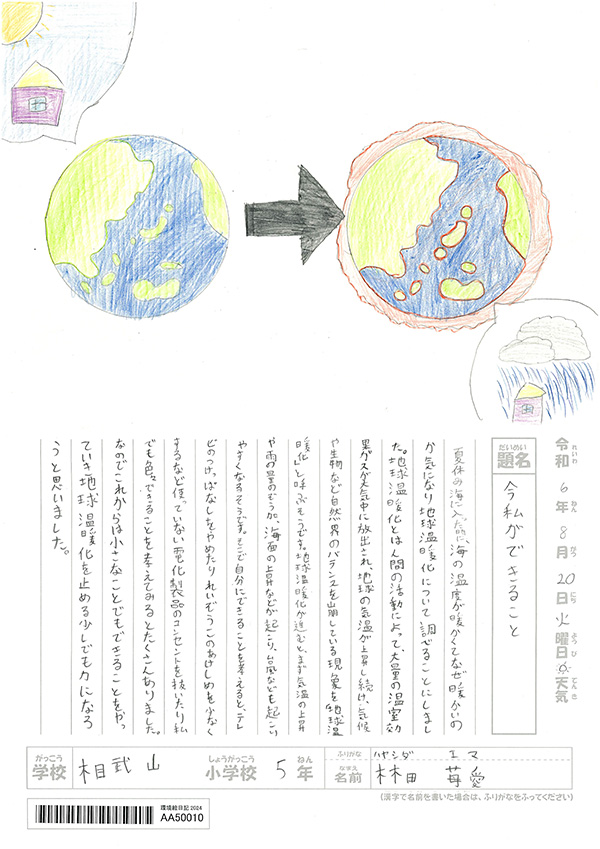 令和6年8月20日火曜日天気
れいわ ねん がつ にち ようび てんき
だいめい
題名 今私ができること
夏休み海に入った時に、海の温度が暖かくてなぜ暖かいの
か気になり地球温暖化について調べることにしまし
た。地球温暖化とは人間の活動によって、大量の温室効
果ガスが大気中に放出され、地球の気温が上昇し続け、気候
や生物など自然界のバランスを崩している現象を「地球温
暖化」と呼ぶそうです。地球温暖化が進むと、まず気温の上昇
や雨の量のぞうか、海面の上昇などが起こり、台風なども起こり
やすくなるそうです。そこで自分にできることを考えると、テレ
ビのつけっぱなしをやめたり、れいぞうこのあけしめを少なく
するなど使っていない電化製品のコンセントを抜いたり私
でも色々できることを考えてみるとたくさんありました。
なのでこれからは小さなことでもできることをやっ
ていき地球温暖化を止める少しでも力になろ
うと思いました。
がっこう しょうがっこう ねん ふりがな ハヤシダ エマ
学校 相武山 小学校 5年 なまえ 名前 林田 苺愛
(漢字で名前を書いた場合は、ふりがなをふってください)
環境絵日記2024
AA50010